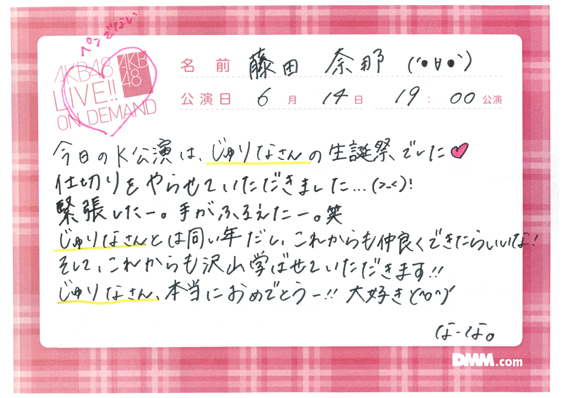 ペンでない
AKB48
LIVE!!
ON DEMAND
AKB
48
名前 藤田 奈那 (・∀・)
公演日 6月 14日 19:00公演
今日のK公演は、じゅりなさんの生誕祭でした♥
仕切りをやらせていただきました…(>_<)!
緊張したー。手がふるえたー。笑
じゅりなさんとは同い年だし、これからも仲良くできたらいいな!
そして、これからも沢山学ばせていただきます!!
じゅりなさん、本当におめでとうー!! 大好きです(^o^)
なーな。
DMM.com